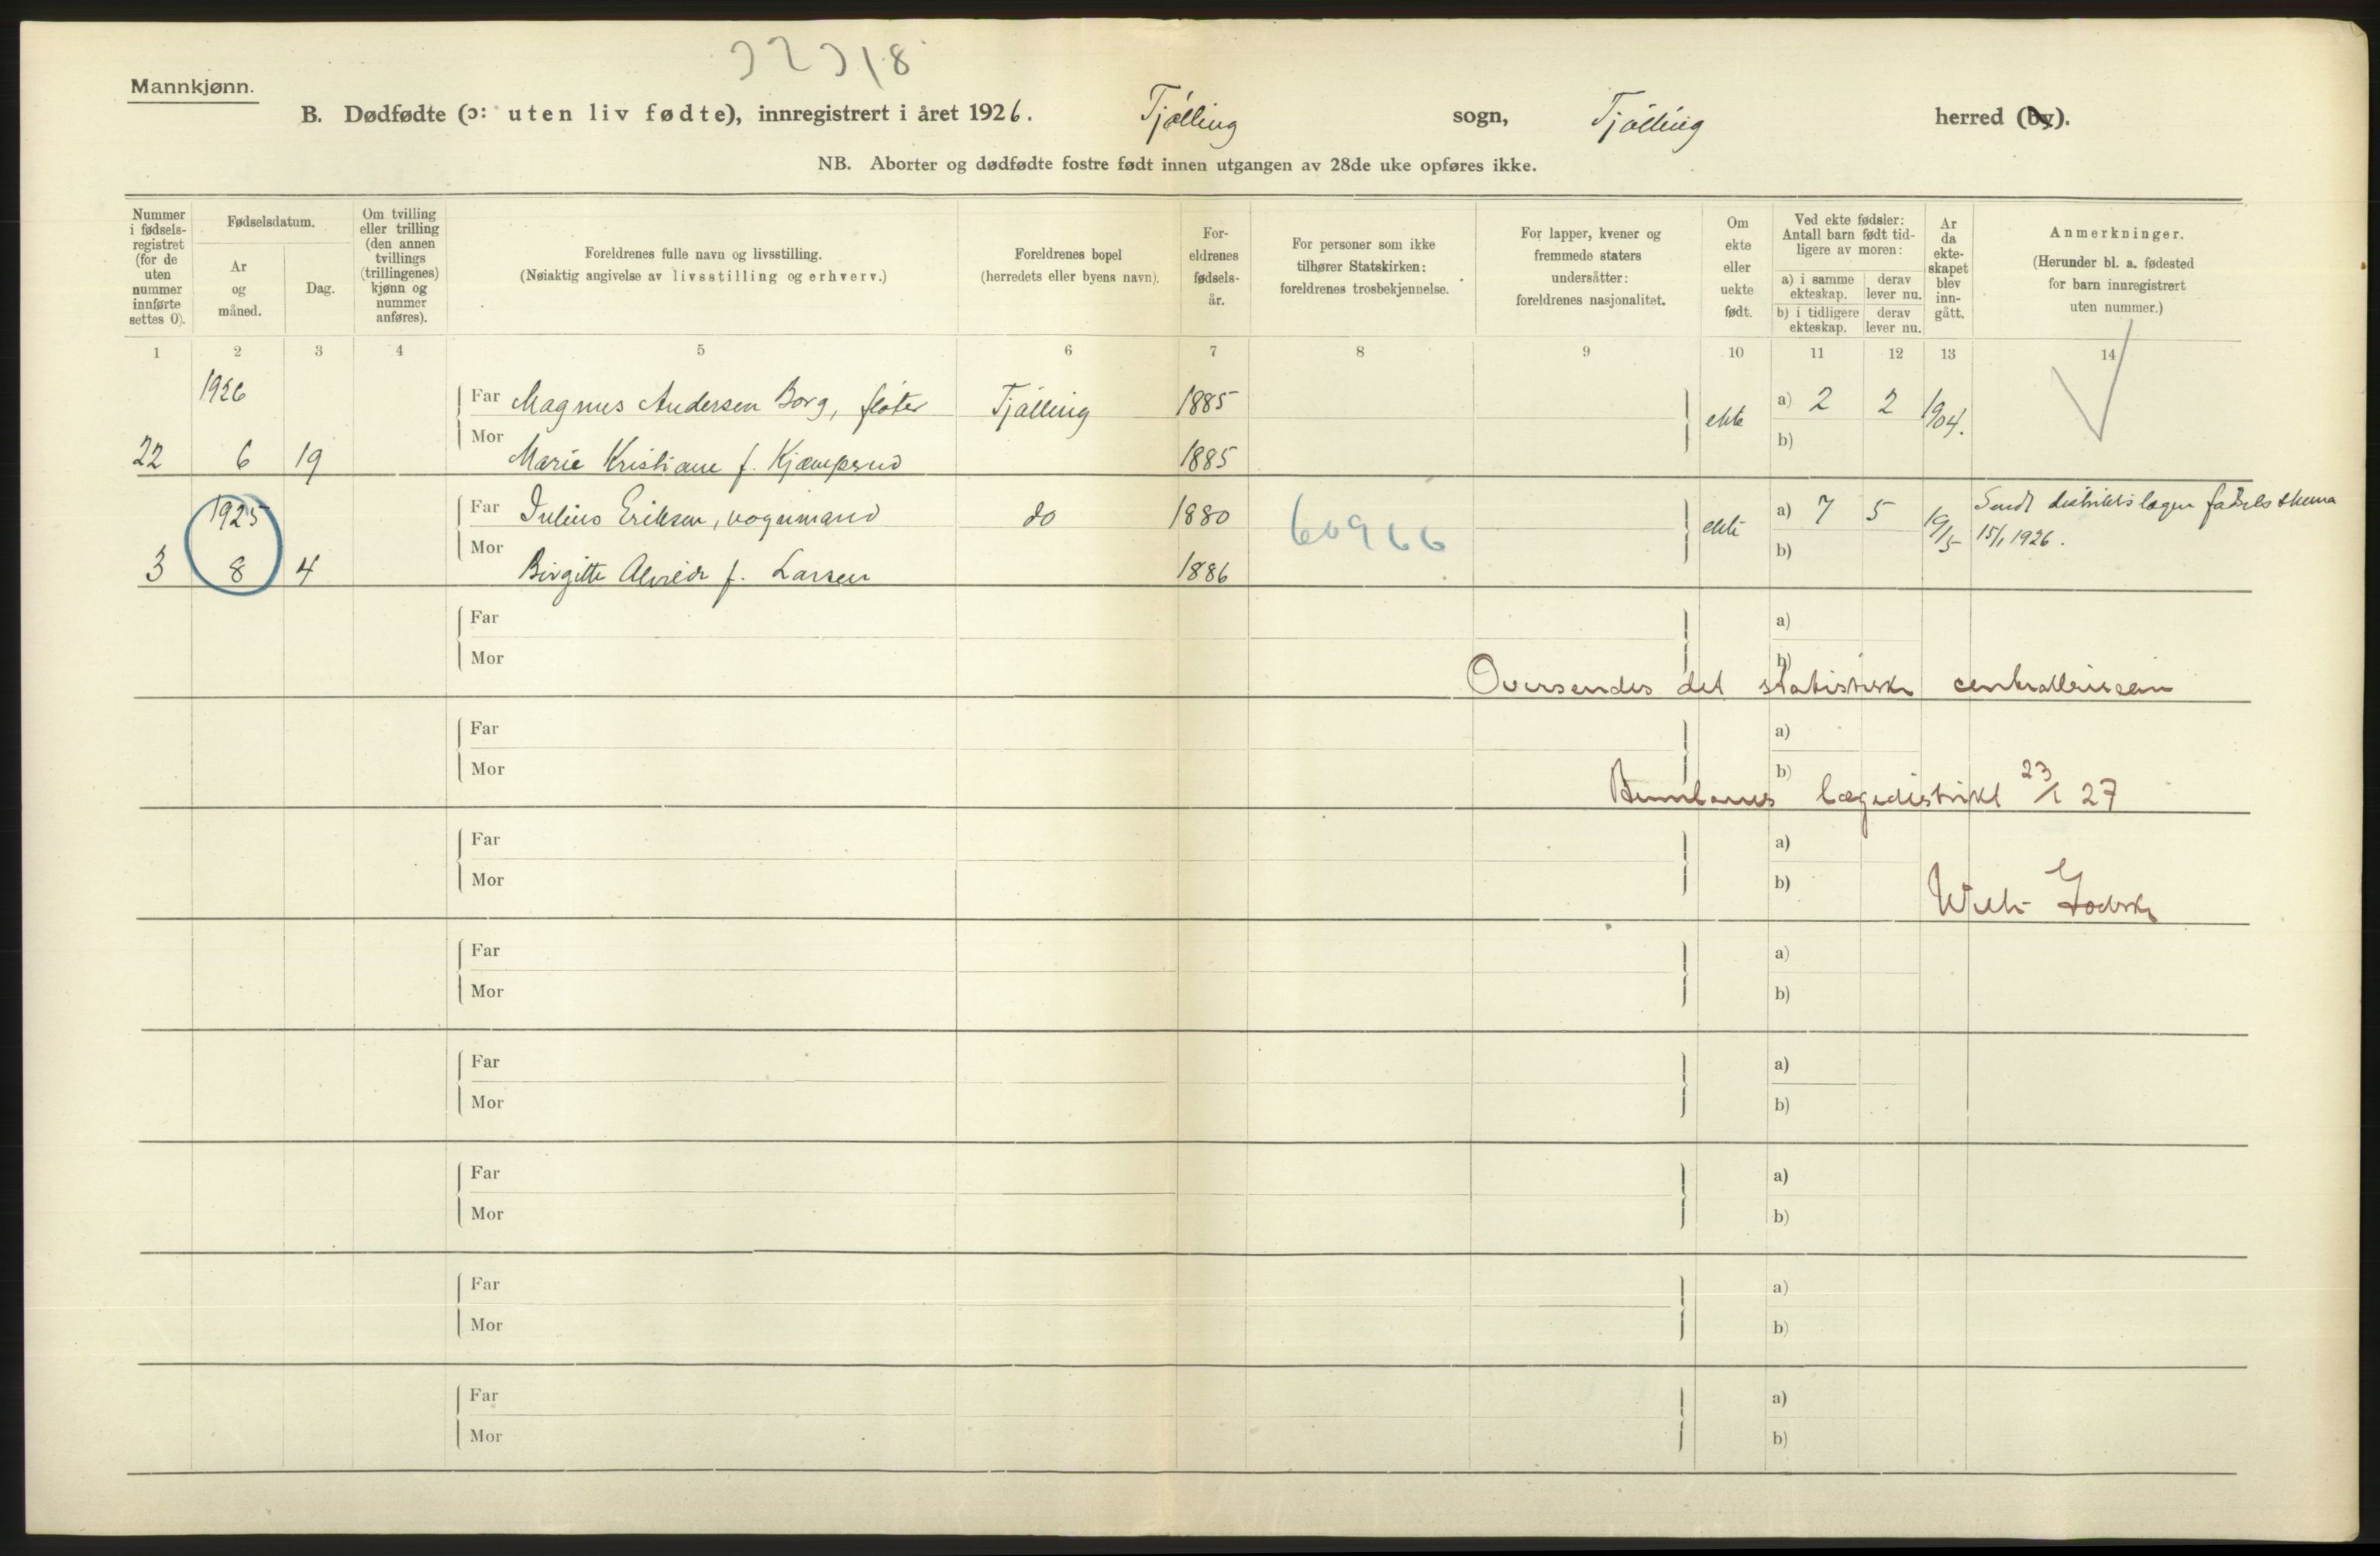 Mannkjønn.
B. Dødfødte (ɔ: uten liv fødte), innregistrert i året 1926. Tjølling sogn, Tjølling herred (by).
NB. Aborter og dødfødte fostre født innen utgangen av 28de uke opføres ikke.
Nummer i fødsels-registret (for de uten nummer innførte settes 0).
Fødselsdatum.
Ar og måned.
Dag.
Om tvilling eller trilling (den annen tvillings (trillingenes) kjønn og nummer anføres).
Foreldrenes fulle navn og livsstilling.
(Nøiaktig angivelse av livsstilling og erhverv.)
Foreldrenes bopel
(herredets eller byens navn).
For-eldrenes fødsels-år.
For personer som ikke tilhører Statskirken: foreldrenes trosbekjennelse.
For lapper, kvener og fremmede staters undersåtter: foreldrenes nasjonalitet.
Om ekte eller uekte født.
Ved ekte fødsler: Antall barn født tid-ligere av moren:
a) i samme ekteskap. derav lever nu.
b) i tidligere ekteskap. derav lever nu.
Ar da ekte-skapet blev inn-gått.
Anmerkninger.
(Herunder bl. a. fødested for barn innregistrert uten nummer.)
1 2 3 4 5 6 7 8 9 10 11 12 13 14
1926
Far Magnus Andersen Borg, fløter Tjølling 1885 ekte a) 2 2 1904.
22 6 19 Mor Marie Kristiane f. Kjæmperud 1885 b)
1925 Far Julius Eriksen, vognmand do 1880 60966 ekte a) 7 5 19/5 Sendt distriktslægen fødsels skema
3 8 4 Mor Birgitte f. Larsen 1886 b) 15/1 1926.
Far a)
Mor b)
Oversendes det statistiske centralbureau
Far a)
Mor b)
Brunlanes lægedistrikt 23/1 27
Far a)
Mor b)
Far a)
Mor b)
Far a)
Mor b)
Far a)
Mor b)
Far a)
Mor b)
Far a)
Mor b)